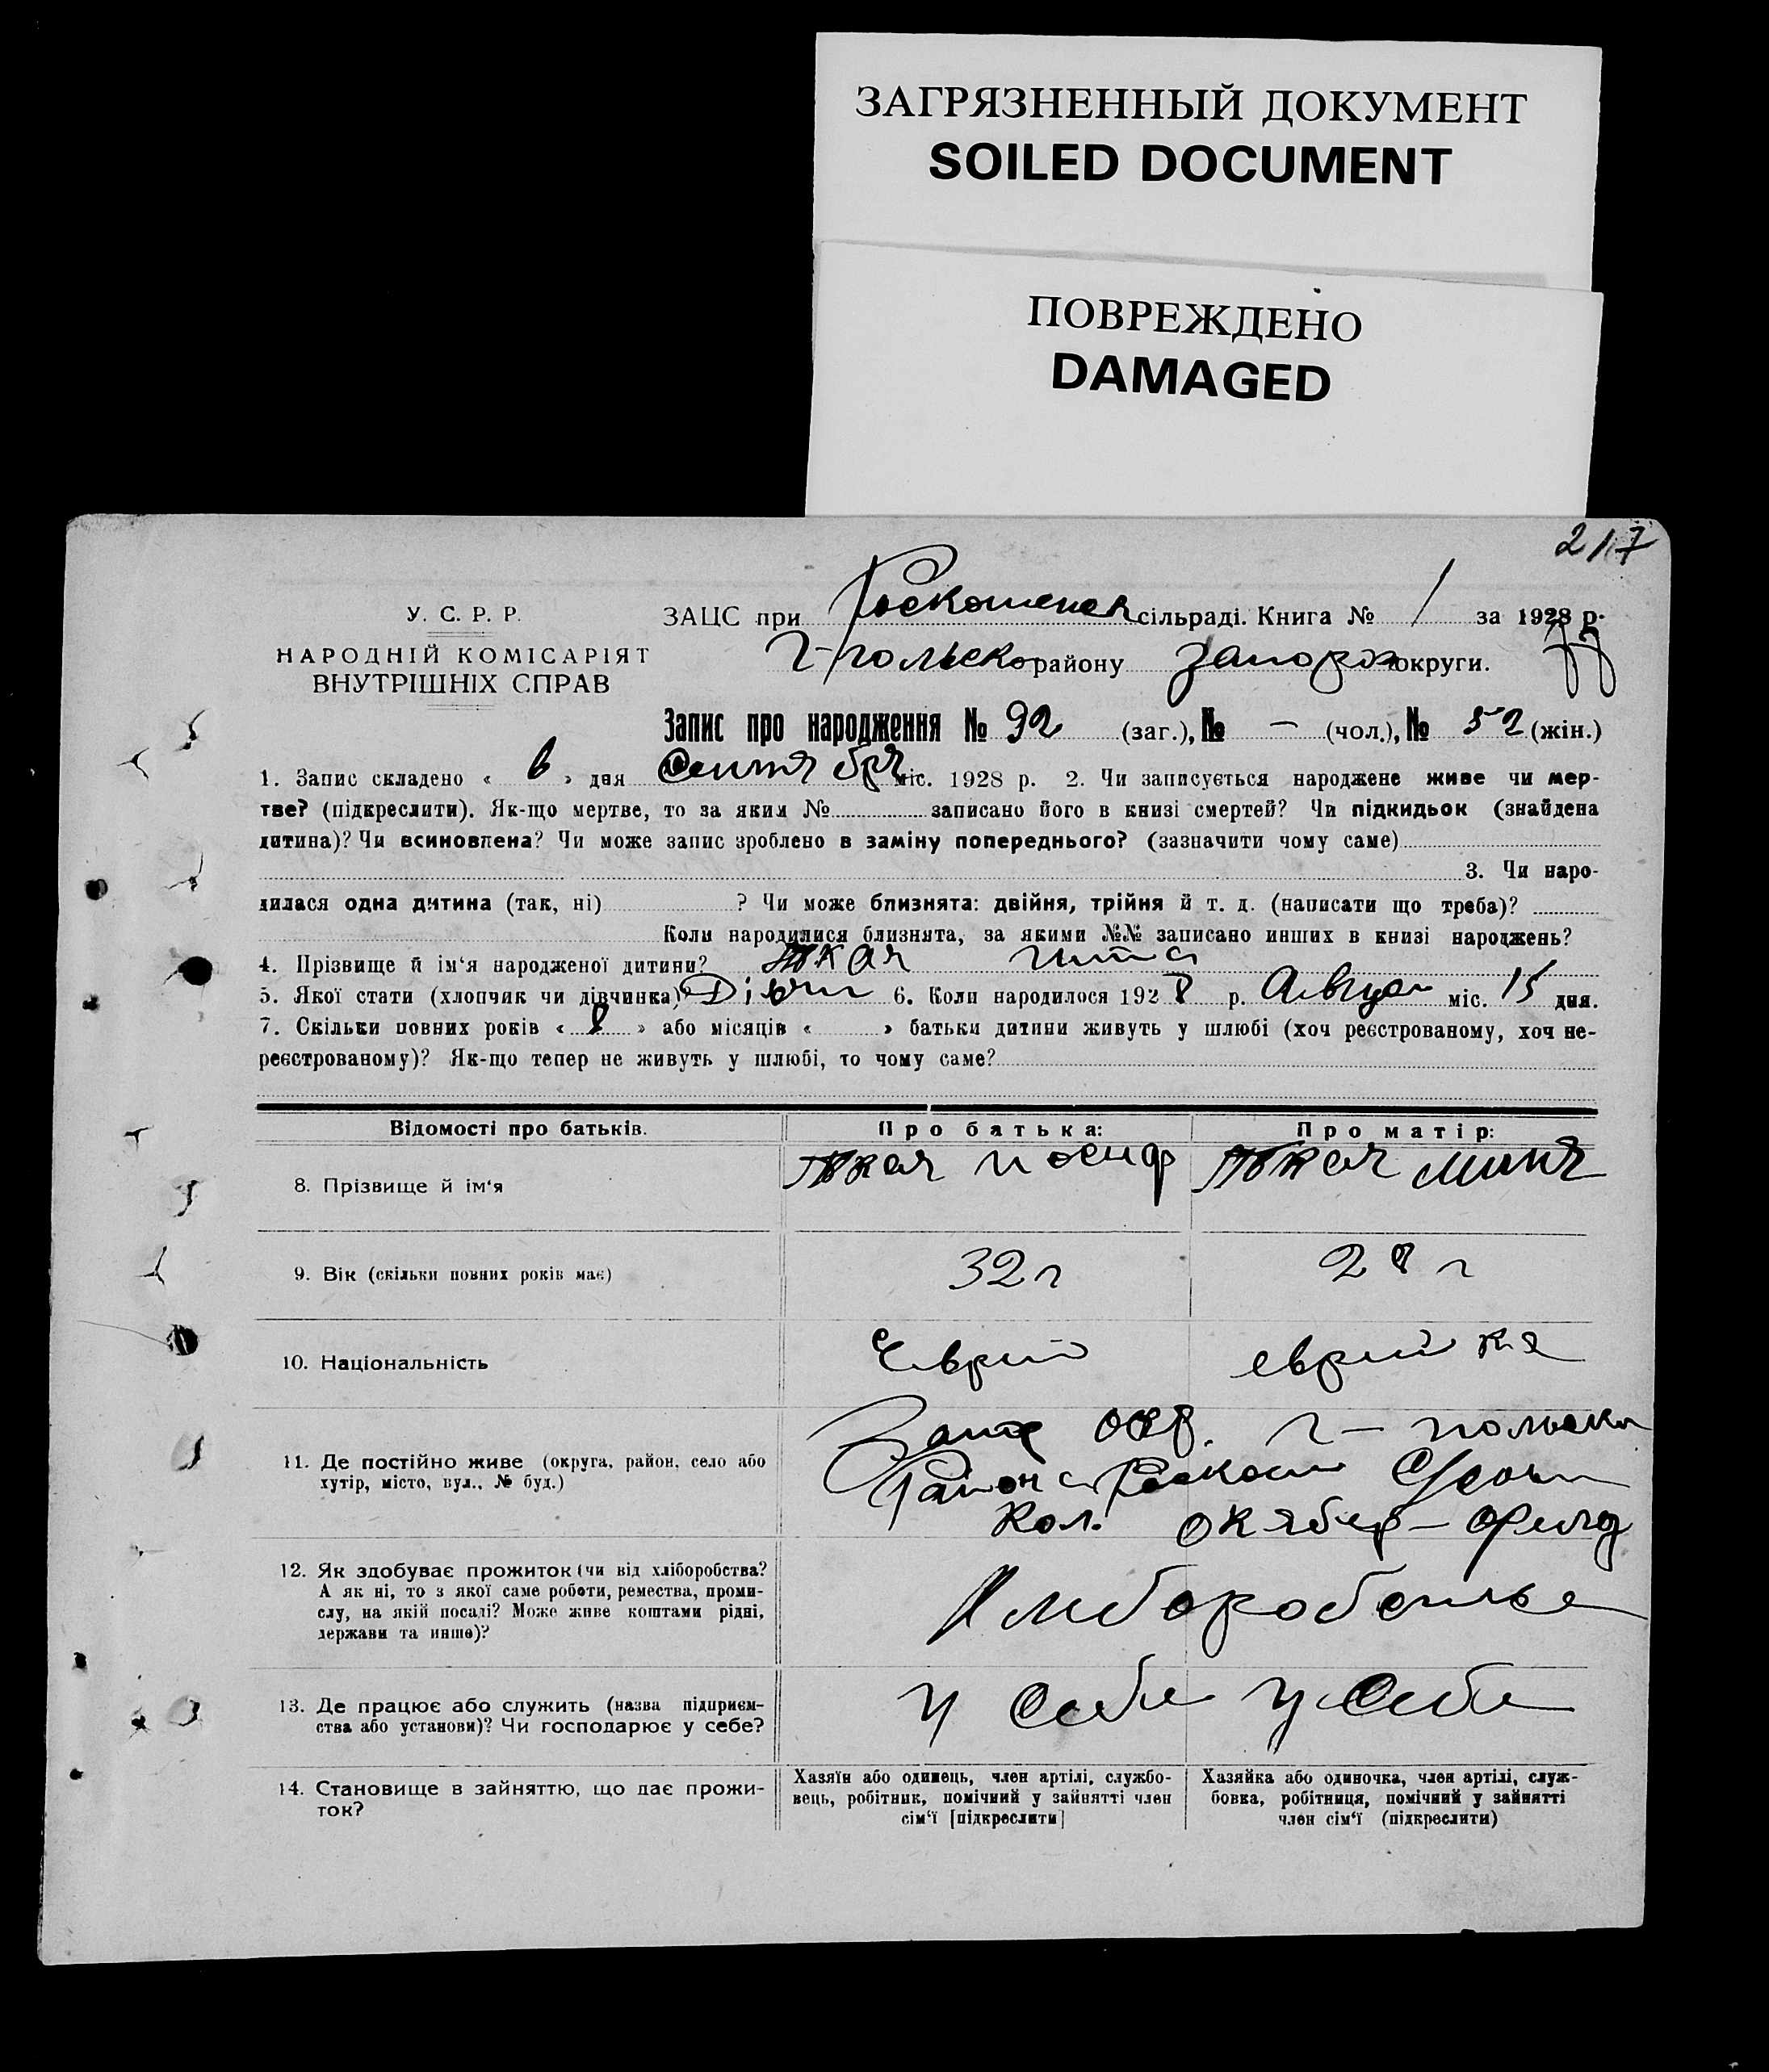 ЗАГРЯЗНЕННЫЙ ДОКУМЕНТ
SOILED DOCUMENT
ПОВРЕЖДЕНО
DAMAGED
217
У. С. Р. Р.
НАРОДНІЙ КОМІСАРІЯТ
ВНУТРІШНІХ СПРАВ
ЗАЦС при сільраді. Книга № 1 за 1928 р.
Г-польско району Запорож округи.
Запис про народження № 92 (заг.), № — (чол.), № 52 (жін.)
1. Запис складено « 6 » дня Сентября міс. 1928 р. 2. Чи записується народжене живе чи мер-
тве? (підкреслити). Як-що мертве, то за яким № записано його в книзі смертей? Чи підкидьок (знайдена
дитина)? Чи всиновлена? Чи може запис зроблено в заміну попереднього? (зазначити чому саме)
3. Чи наро-
дилася одна дитина (так, ні) ? Чи може близнята: двійня, трійня й т. д. (написати що треба)?
Коли народилися близнята, за якими №№ записано инших в книзі народжень?
4. Прізвище й ім‘я народженої дитини? Ткач
5. Якої стати (хлопчик чи дівчинка)? Дівч 6. Коли народилося 1928 р. Август міс. 15 дня.
7. Скільки повних років « 8 » або місяців « » батьки дитини живуть у шлюбі (хоч реєстрованому, хоч не-
реєстрованому)? Як-що тепер не живуть у шлюбі, то чому саме?
Відомості про батьків. Про батька: Про матір:
8. Прізвище й ім‘я Ткач Иосиф Ткач
9. Вік (скільки повних років має) 32 г 28 г
10. Національність Еврій еврийка
11. Де постійно живе (округа, район, село або
хутір, місто, вул., № буд.)
Запор окр. Г-польски
Район
Кол. Октябер-Фельд
12. Як здобуває прожиток (чи від хліборобства?
А як ні, то з якої саме роботи, ремества, проми-
слу, на якій посаді? Може живе коштами рідні,
держави та инше)?
13. Де працює або служить (назва підприєм-
ства або установи)? Чи господарює у себе?
у себе у себе
14. Становище в зайняттю, що дає прожи-
ток?
Хазяїн або одинець, член артілі, службо-
вець, робітник, помічний у зайнятті член
сім‘ї [підкреслити]
Хазяйка або одиночка, член артілі, служ-
бовка, робітниця, помічний у зайнятті
член сім‘ї (підкреслити)